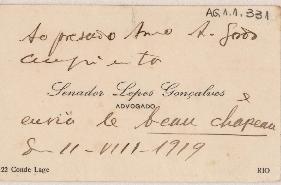 AG.1.1.331
Ao presado Amo A. Godo
cumprimenta
Senador Lopes Gonçalves
ADVOGADO
e
envia le beau chapeau
11-VIII-1919
22 Conde Lage RIO